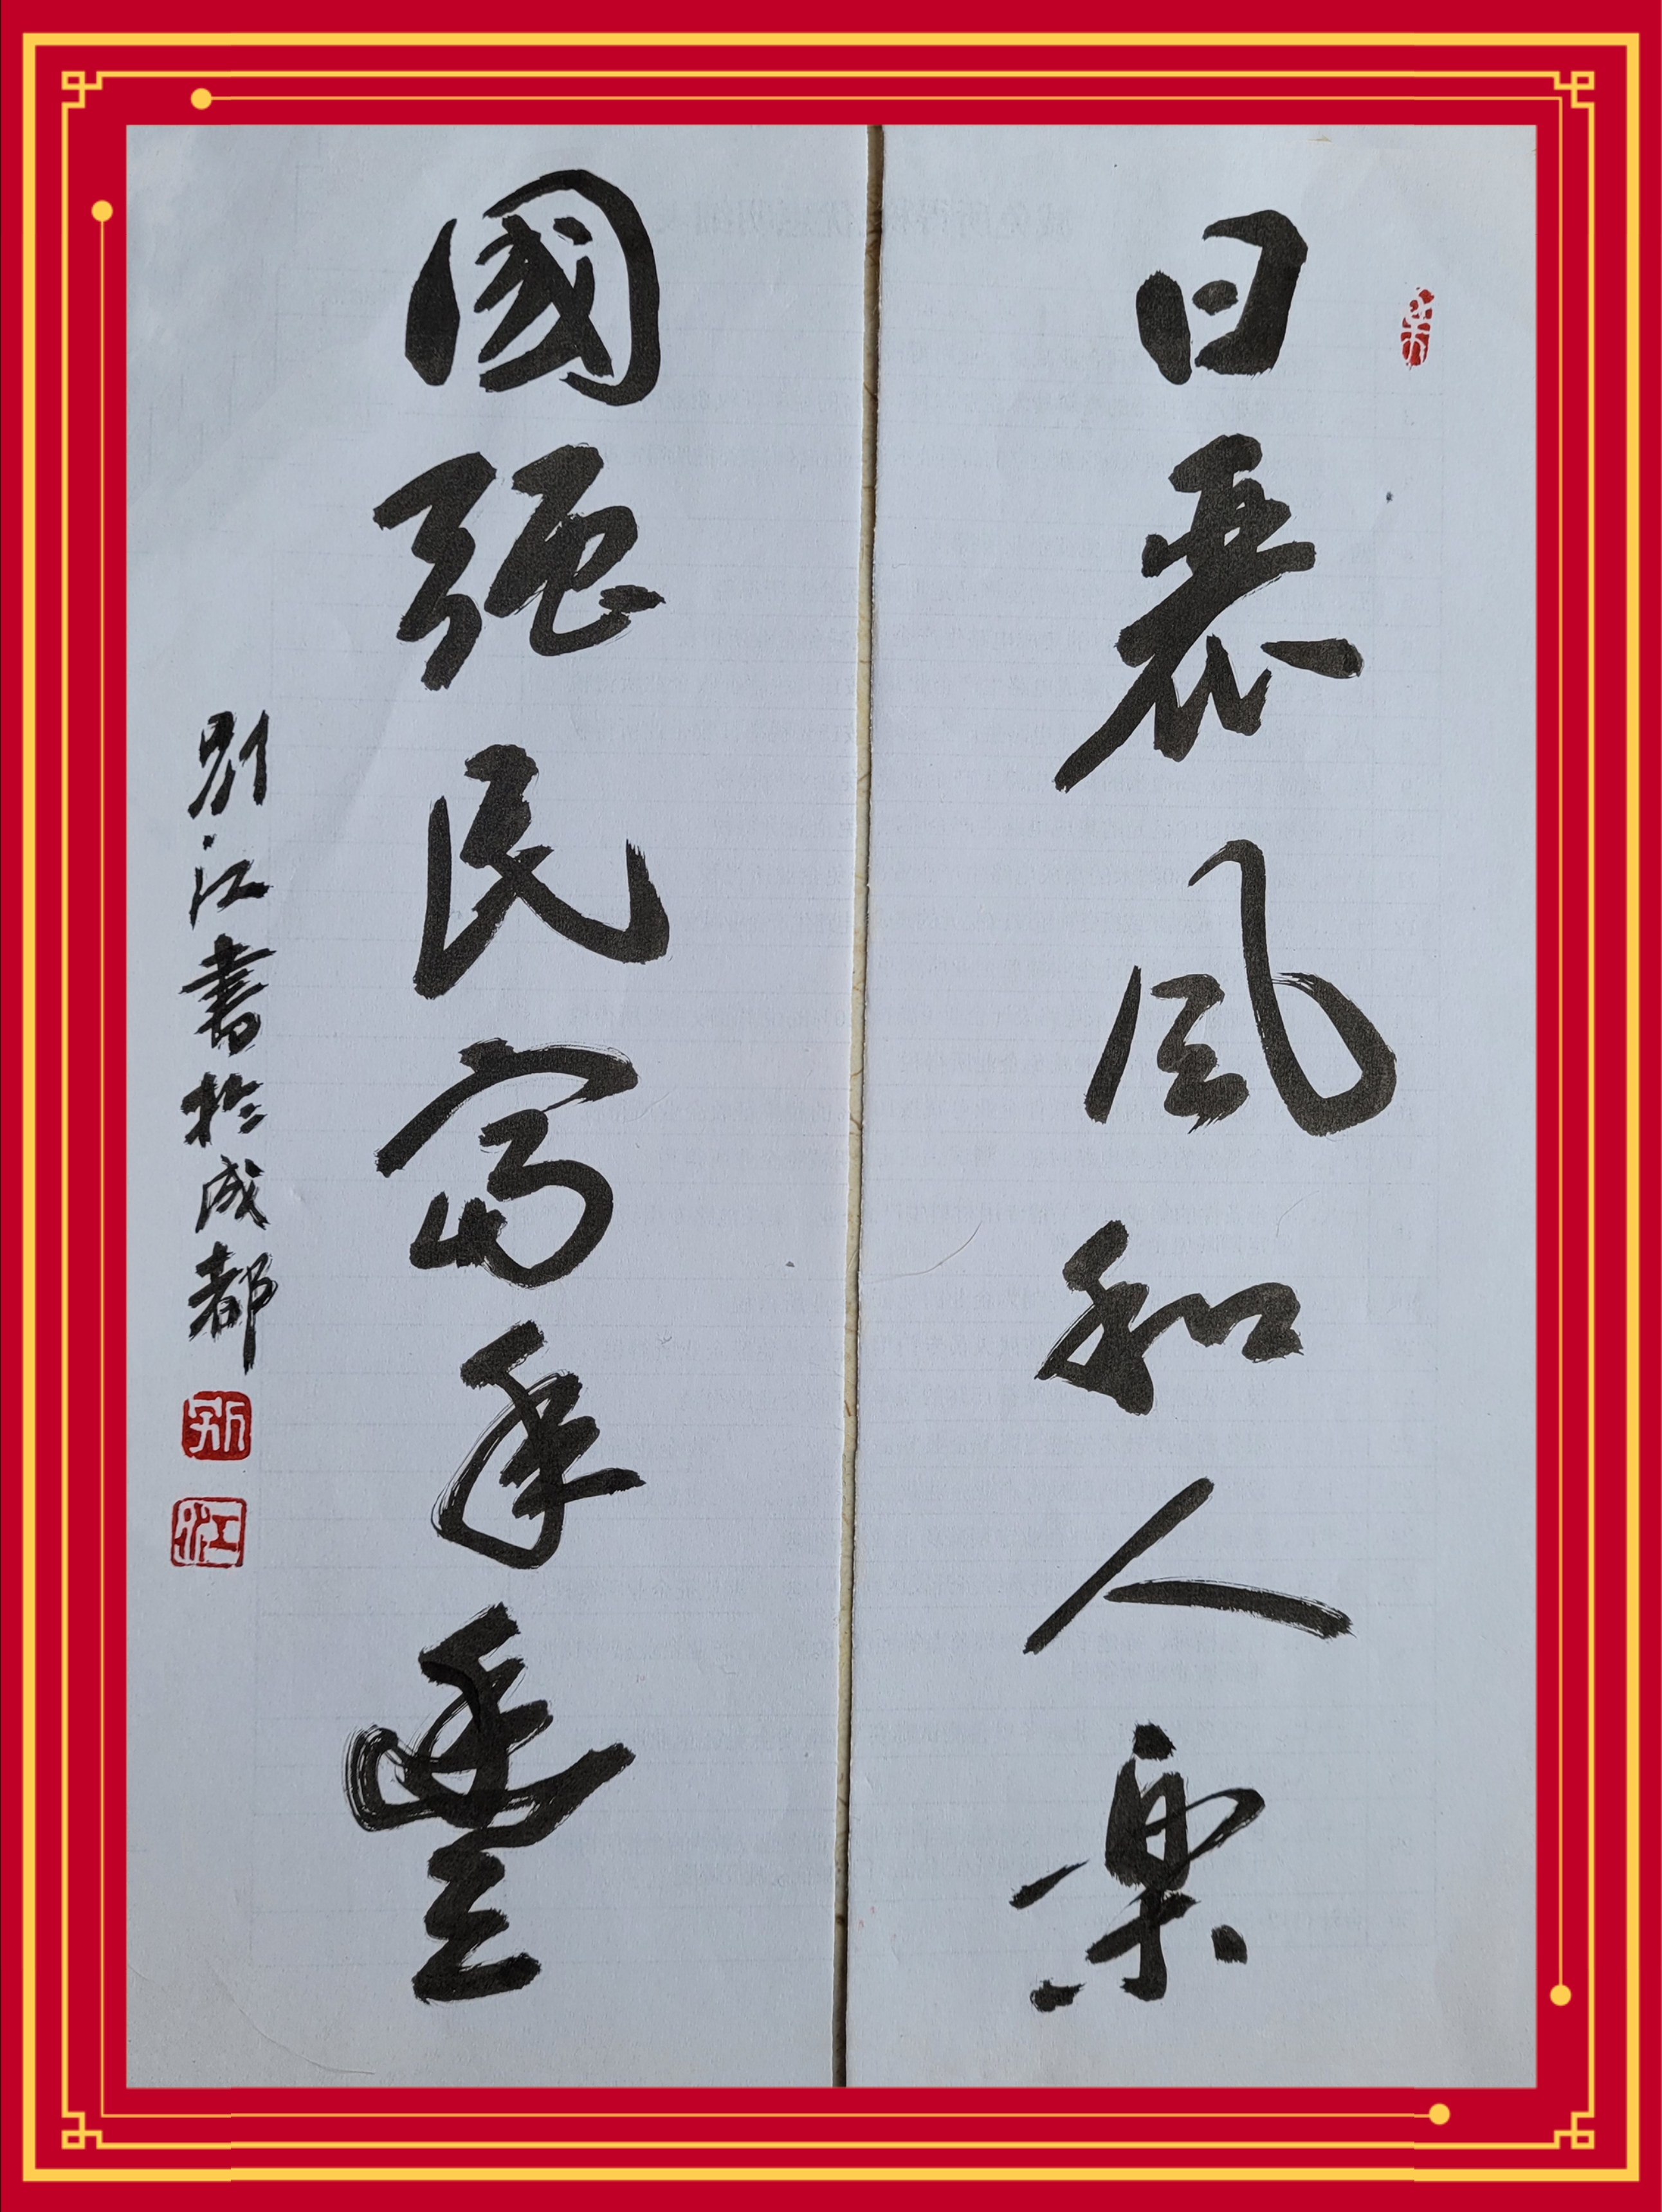 日麗風和人樂
國强民富年豐
别江書於成都
别
江